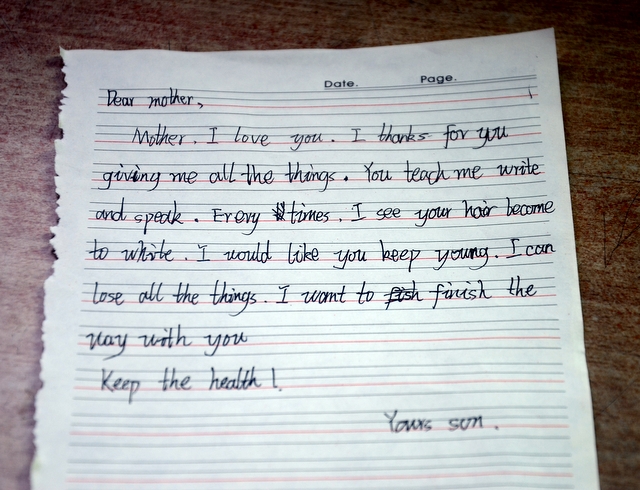 Date. Page.
Dear mother,
Mother. I love you. I thanks for you
giving me all the things. You teach me write
and speak. Every times. I see your hair become
to white. I would like you keep young. I can
lose all the things. I want to fish finish the
way with you
Keep the health!
Yours son.